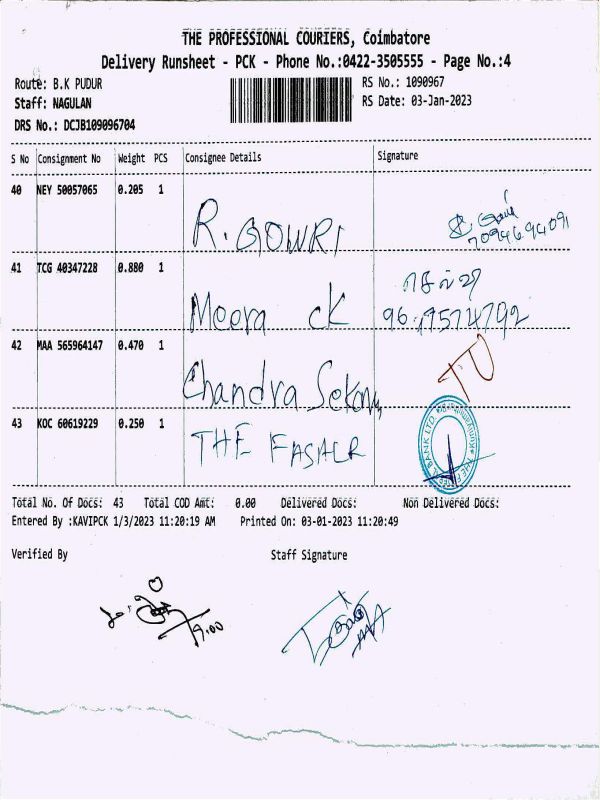 THE PROFESSIONAL COURIERS, Coimbatore
Delivery Runsheet - PCK - Phone No.:0422-3505555 - Page No.:4
Route: B.K PUDUR
RS No.: 1090967
Staff: NAGULAN
RS Date: 03-Jan-2023
DRS No.: DCJB109096704
S No Consignment No Weight PCS Consignee Details Signature
40 NEY 50057065 0.205 1 R. GOWRI
7094694091
41 TCG 40347228 0.880 1 Meera CK செல்வி
9617574792
42 MAA 565964147 0.470 1 Chandra Sekar
43 KOC 60619229 0.250 1 THE
BANK LTD.
Total No. Of Docs: 43 Total COD Amt: 0.00 Delivered Docs: Non Delivered Docs:
Entered By :KAVIPCK 1/3/2023 11:20:19 AM Printed On: 03-01-2023 11:20:49
Verified By Staff Signature
19.00